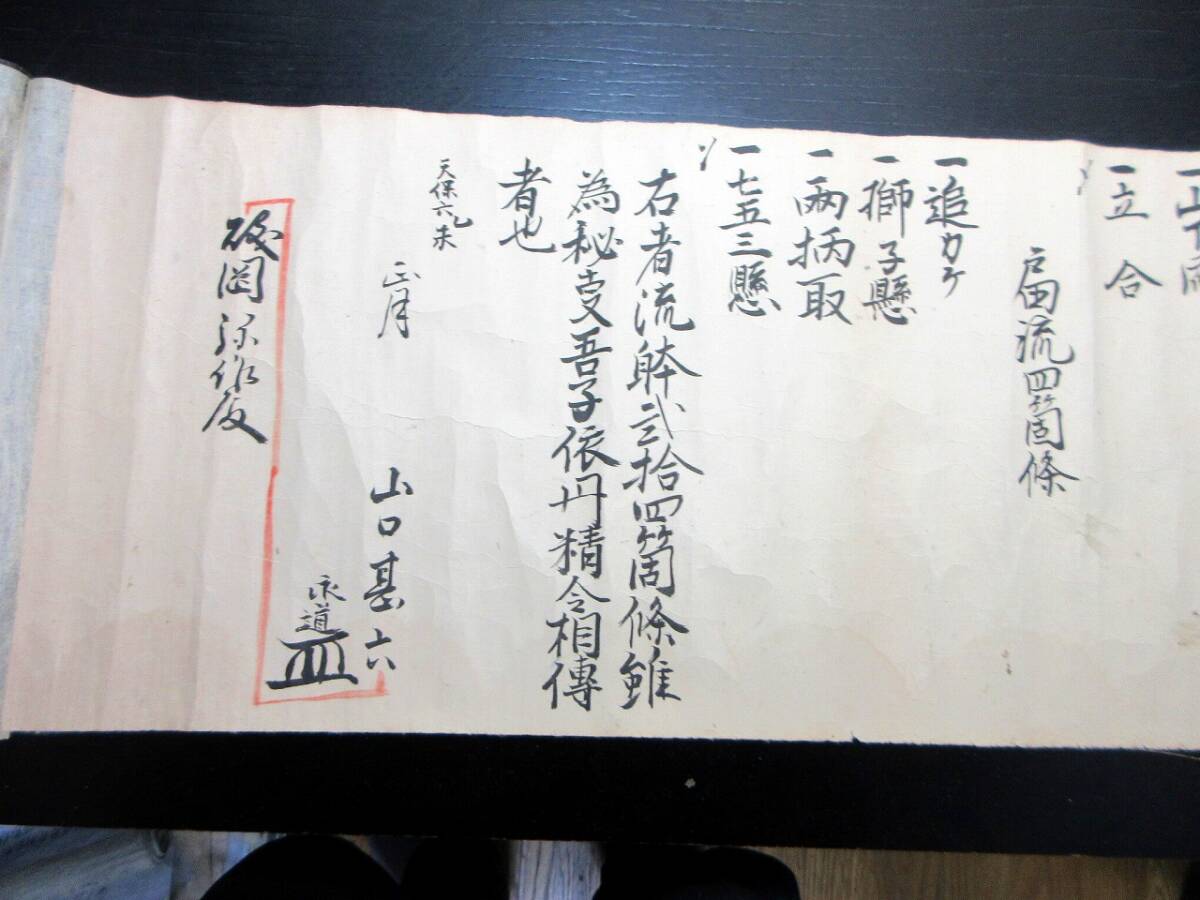 一立合
扁流四箇條
一追カケ
一獅子懸
一両柄取
一七五三懸
右者流躰弐拾四箇條雖
為秘㕝吾子依丹精令相傳
者也
天保六乙未
正月
山口甚六
永道
磯岡弥作殿